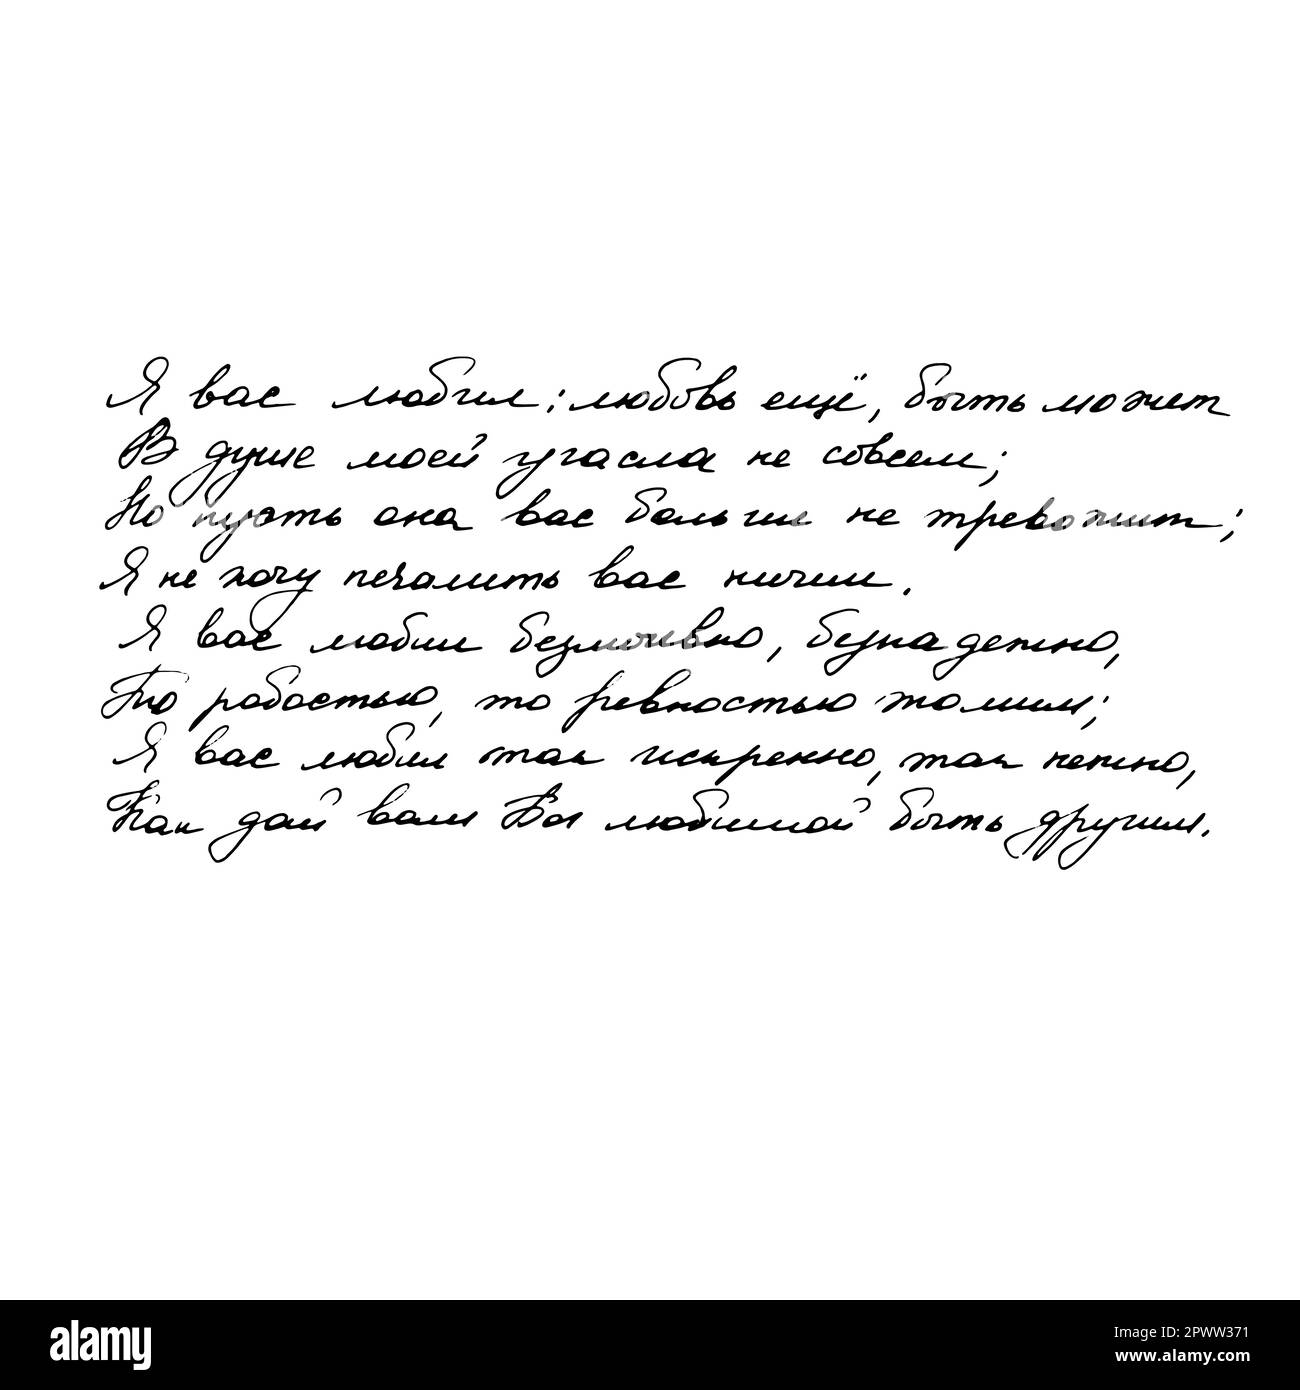 Я вас любил: любовь ещё, быть может
В душе моей угасла не совсем;
Но пусть она вас больше не тревожит;
Я не хочу печалить вас ничим.
Я вас любил безмолвно, безнадежно,
То робостью, то ревностью томим;
Я вас любил так искренно, так нежно,
Как дай вам Бог любимой быть другим.
alamy
Image ID: 2PWW371
www.alamy.com